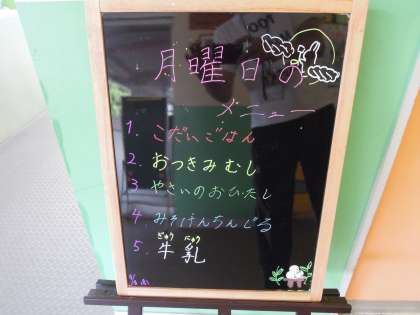 月曜日の
メニュー
1. こだいごはん
2. おつきみむし
3 やさいのおひたし
4. みそけんちんじる
5. 牛乳
ぎゅう にゅう